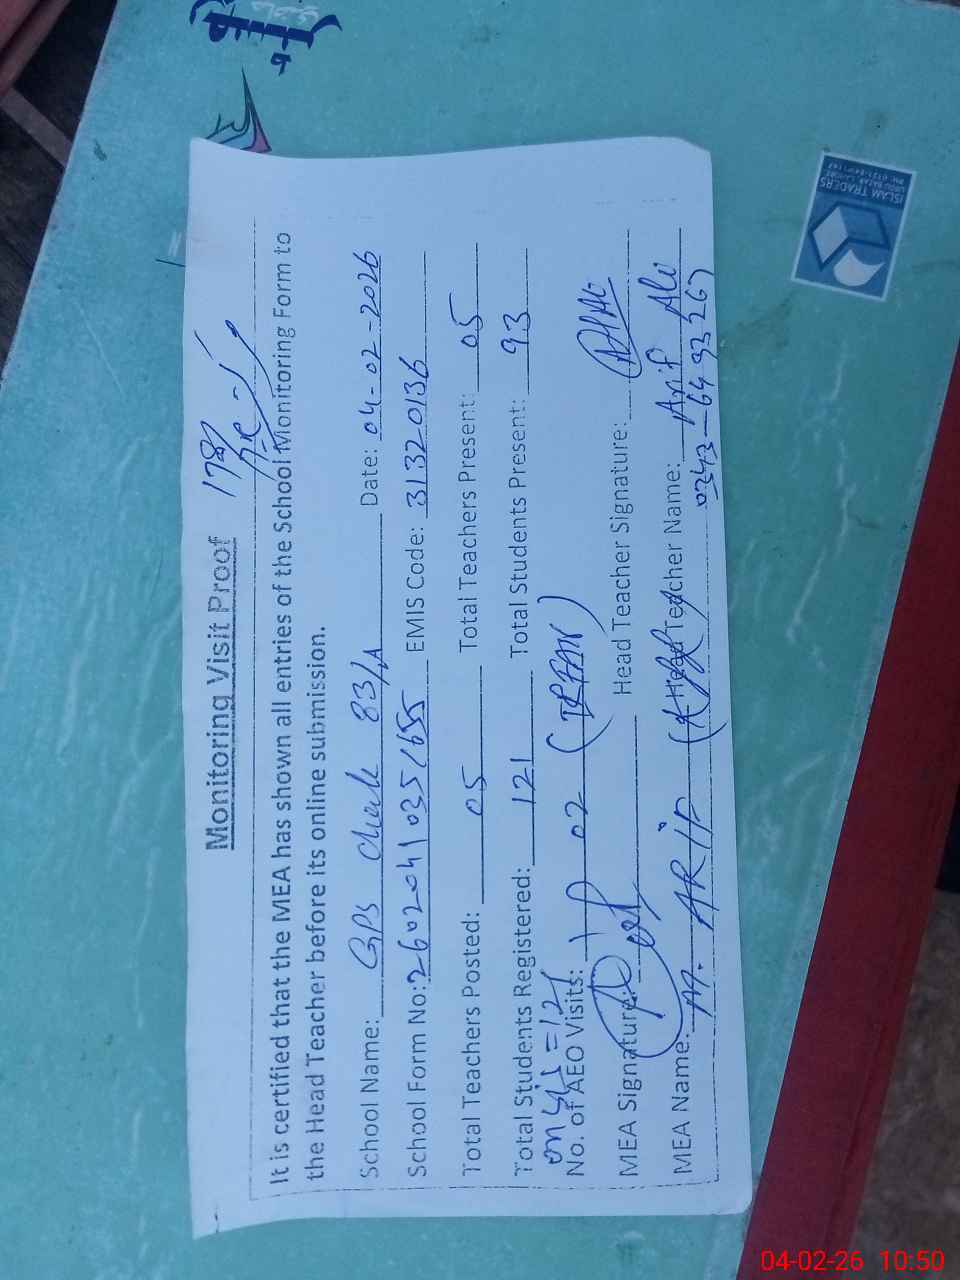 1787
Monitoring Visit Proof
It is certified that the MEA has shown all entries of the School Monitoring Form to
the Head Teacher before its online submission.
School Name: GPS Chak 83/A Date: 04-02-2026
School Form No: 26020410351655 EMIS Code: 31320136
Total Teachers Posted: 05 Total Teachers Present: 05
Total Students Registered: 121 Total Students Present: 93
on SIS = 121
No. of AEO Visits: 02 (IRFAN)
MEA Signature: Head Teacher Signature:
MEA Name: M. ARIF Head Teacher Name: Arif Ali
0343-6493267
ISLAM TRADERS
URDU BAZAR LAHORE
04-02-26 10:50